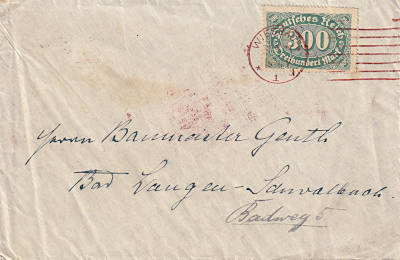 Deutsches Reich
300
Dreihundert Mark
WIESB
* 1
Herrn Baumeister Genth
Bad Langen-Schwalbach.
Badweg 5